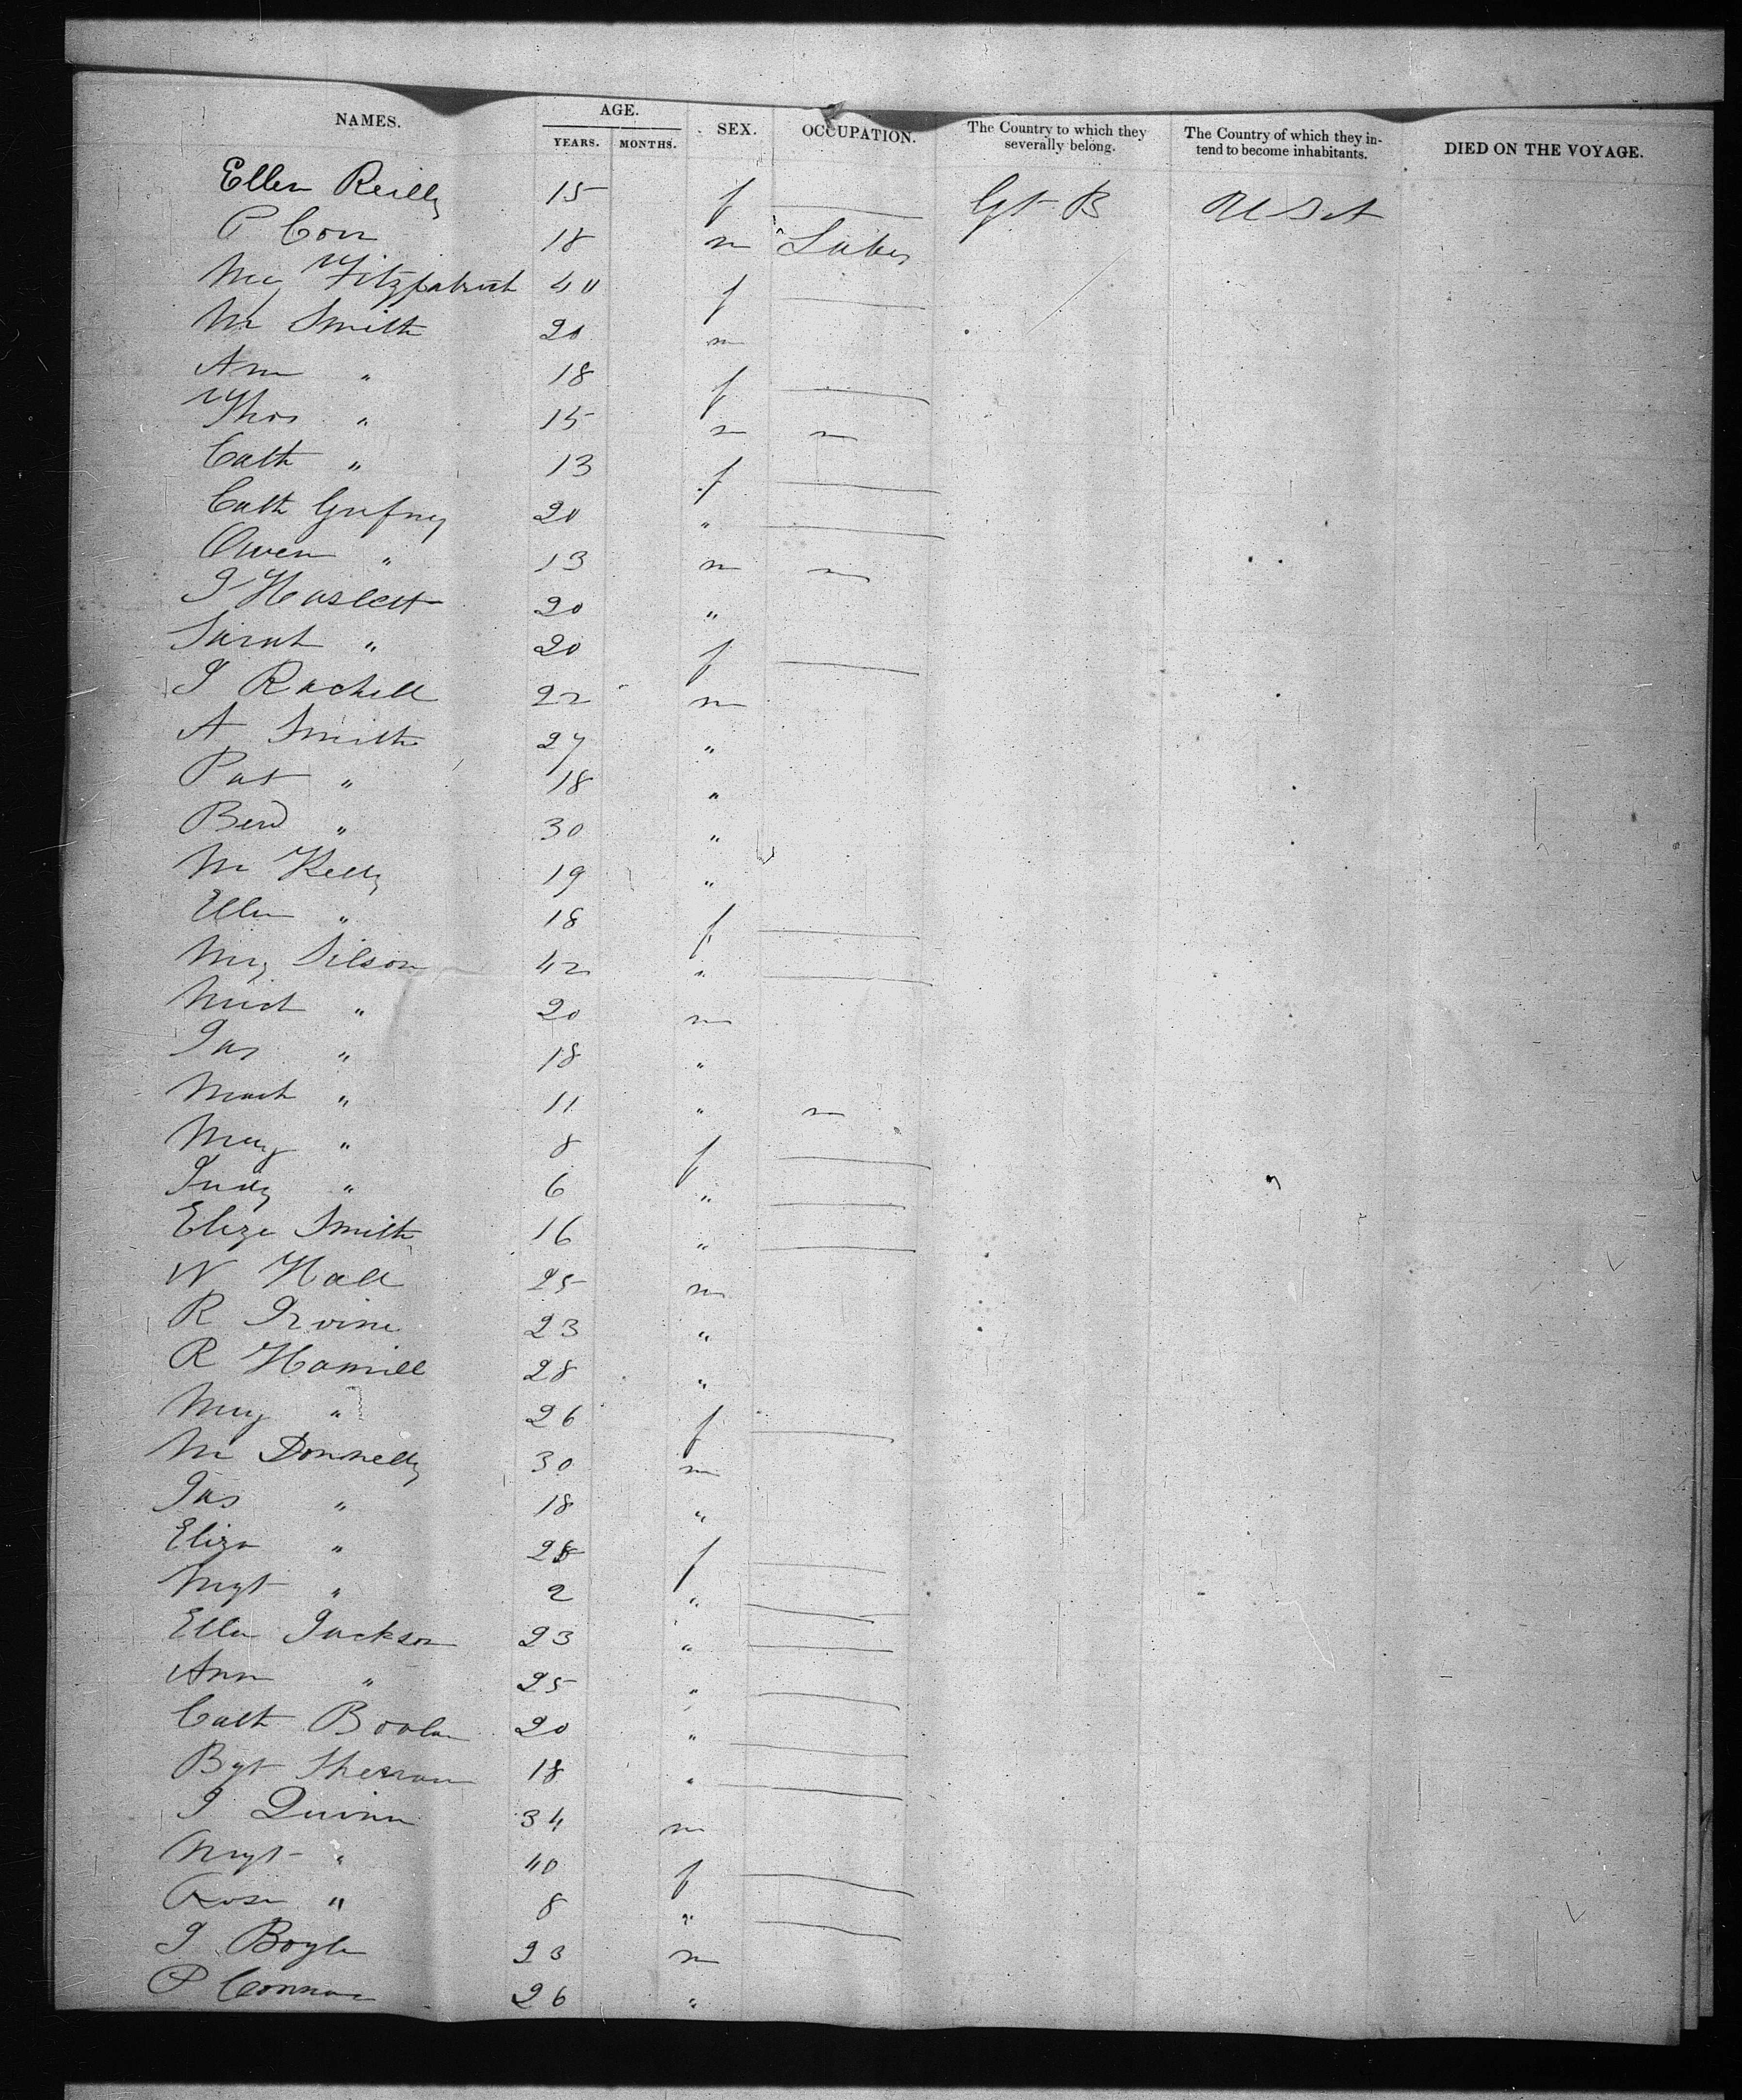 NAMES. AGE. YEARS. MONTHS. SEX. OCCUPATION. The Country to which they severally belong. The Country of which they intend to become inhabitants. DIED ON THE VOYAGE.
Ellen Reilly 15 f — Gt B U S A
P Corr 18 m Laber
My Fitzpatrick 40 f —
M Smith 20 m
Ann " 18 f —
Thos " 15 m ~
Cath " 13 f —
Cath Gufney 20 " —
Owen " 13 m ~
J Haslett 20 "
Sarah " 20 f —
J Rachell 22 m
A Smith 27 "
Pat " 18 "
Berd " 30 "
M Kelly 19 "
Ellen " 18 f —
My Silson 42 " —
Mich " 20 m
Jas " 18 "
" 11 " ~
Mary " 8 f —
Judy " 6 " —
Eliza Smith 16 " —
W Hall 25 m
R Irvine 23 "
R Hamill 28 "
My " 26 f —
M Donnelly 30 m
Jas " 18 "
Eliza " f —
Mgt " 2 " —
Ellen Jackson 23 " —
Ann " 25 " —
Cath Boolan 20 " —
Bgt 18 " —
J Quinn 34 m
Mgt " 40 f —
Rose " 8 " —
J Boyle 23 m
P Connor 26 "